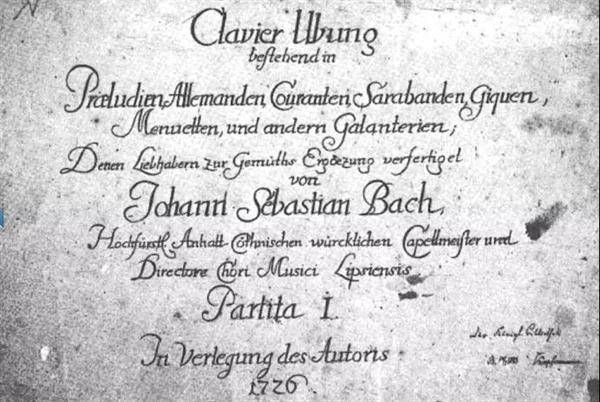 Clavier Ubung
bestehend in
Præludien, Allemanden, Couranten, Sarabanden, Giquen,
Menuetten, und andern Galanterien;
Denen Liebhabern zur Gemüths Ergoezung verfertiget
von
Johann Sebastian Bach,
Hochfürstl. Anhalt-Cöthnischen würcklichen Capellmeister und
Directore Chori Musici Lipsiensis
Partita I.
In Verlegung des Autoris
1726.